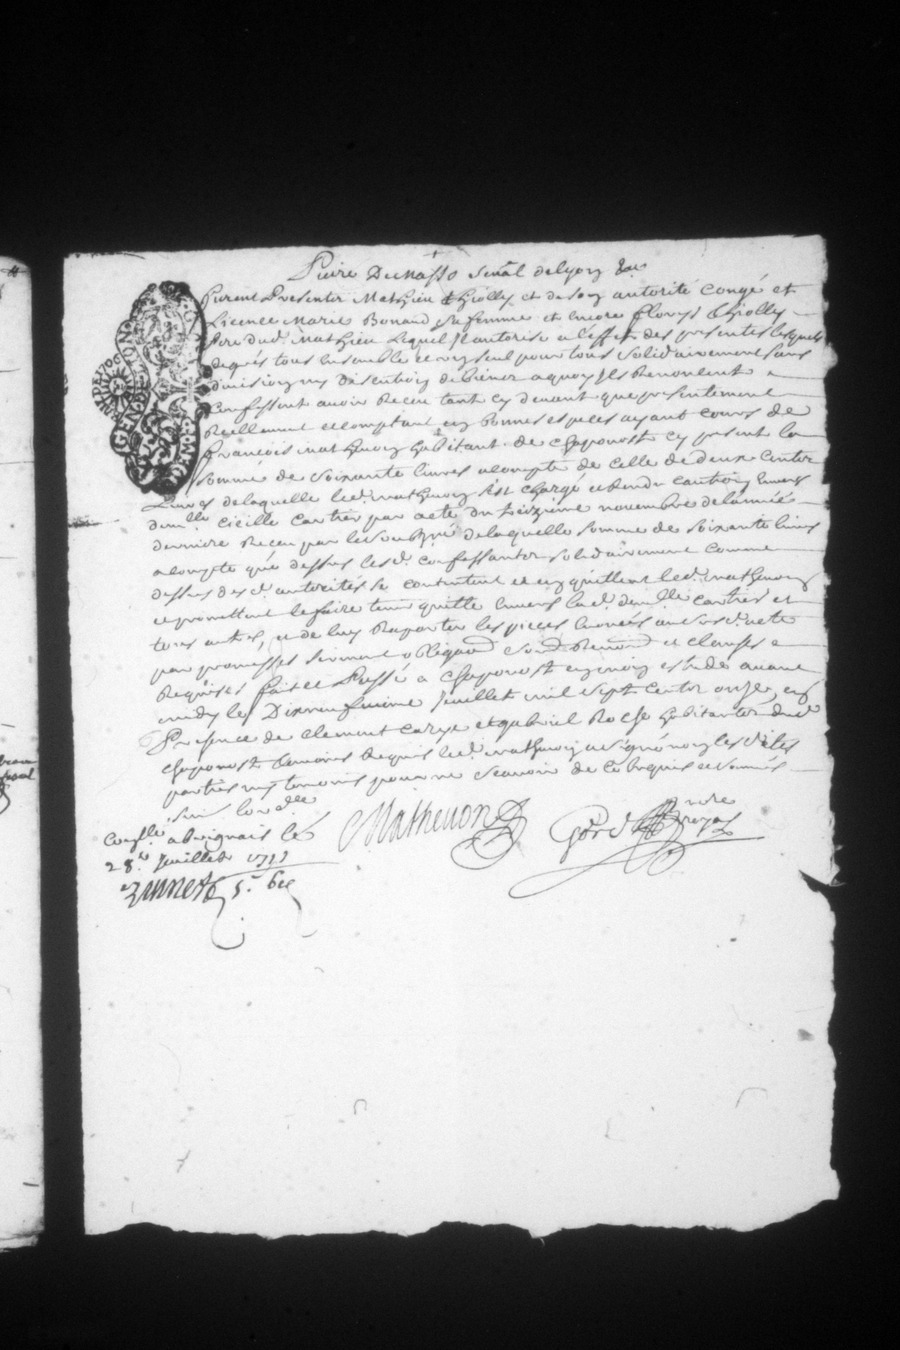 Pierre Dumasso Senal de Lyon &a
furent presentz Mathieu Thiolly et de son autorité congé et
Licence Marie Bonaud sa femme et encore fleurys Thiolly
pere dud. Mathieu lequel Il autorise a l'effet des presentes lesquels
de grés tous ensemble et un seul pour tous solidairement sans
division ny discution de biens a quoy Ils Renoncent
Confessent avoir Receu tant cy devant que presentement
Reellement et comptant en bonnes especes ayant cours de
francois mathevon habitant de chaponost cy present la
somme de soixante livres acompte de celle de deux centz
Livres de laquelle led. mathevon s'est chargé et Rendu caution Envers
demlle cicille cartier par acte du seizieme novembre de l'année
derniere Receu par le soubné de laquelle somme de soixante livres
acompte que dessus lesd. confessantz solidairement comme
dessus et d. autorités se contentent et en quittent led. mathevon
et promettent le faire tenir quitte Envers lad. demlle cartier et
tous autres, et de luy Raporter les pieces
par promesses serment obligaon Renond et clauses
Requises fait et Passé a chaponost maison et avant
midy le Dixneufvieme Juillet mil sept centz onze, en
Presence de clement et gabriel Roche habitantz dud.
chaponost temoins Requis led. mathevon a signé non les dites
parties ny temoins pour ne scavoir de ce Enquis et sommés
Mathevon
Gord nore royal
Conlle
a brignais le
28e Juillet 1711
5s 6d
GEN DE LYON
1706